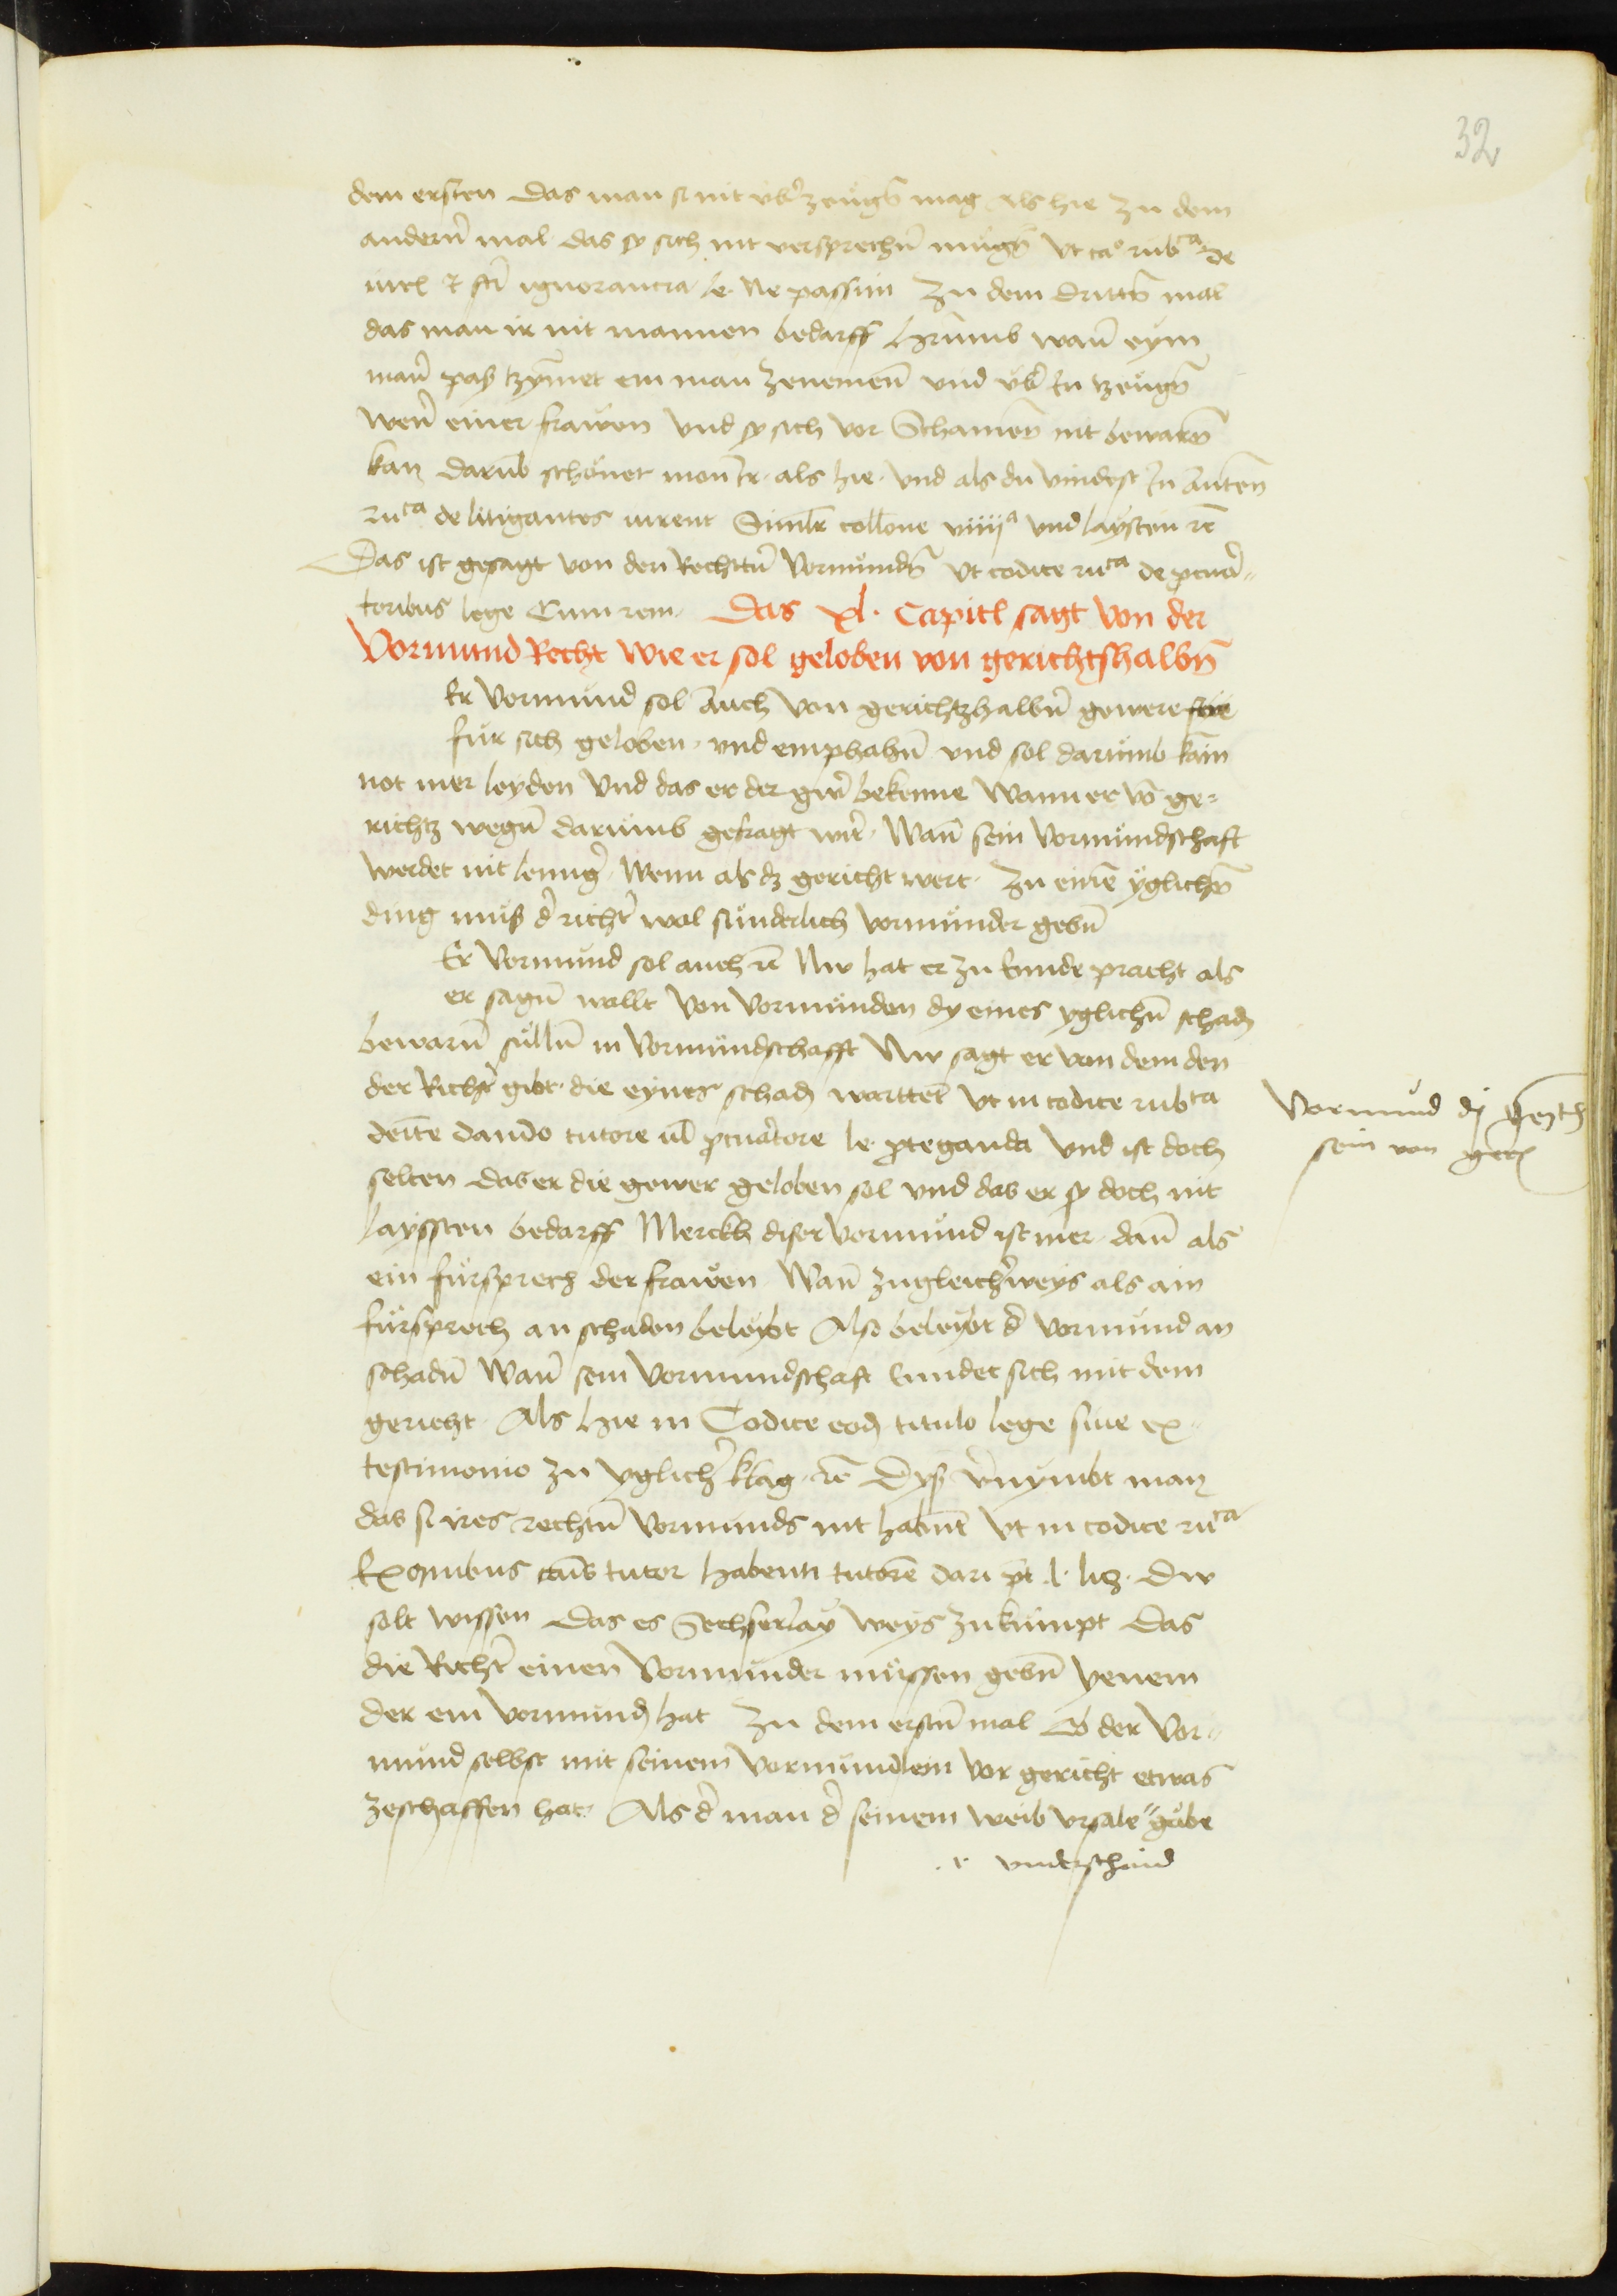 32
dem ersten Das man si nit vb̄erzeugn̄ mag als hie zu dem
andern̄ mal das sy sich nit versprechn̄ mugn̄ Vt c͞o rubca de
iur̄ & fc̄i ignorancia le. Ne passim Zu dem dritn̄ mal
das man ir nit mannen bedarff hrumb wan̄ eym
man̄ pas tzymet ein man zenemen̄ vnd vb̄er In tzeugn̄
wen̄ einer frawen vnd sy sich vor Schamen̄ nit bewarn̄
kan darumb schonet mon Ir. als hie. vnd als du vindest In Auten̄
rūca de litigantes iurent Similr̄ collone viiija vnd laysten rc̄
Das ist gesagt von den Rechttn̄ Vormundn̄ Vt codice rūca de pcurā-
toribus lege Cum rem. Das xl. Capitl sagt von der
Vormund Recht Wie er sol geloben von gerichtshalbn̄
Er Vormund sol Auch von gerichtzhalbn̄ gewere
fur sich geloben. vnd emphahn̄ vnd sol darumb kain
not mer leyden Vnd das er der gw̄er bekenne Wann er vō ge-
richtz wegn̄ darumb gefragt wir̄t. Wan̄ sein Vormundschaft
werdet nit lennger̄. Wenn als dz gericht wert. Zu einē yglichn̄
ding muß dr̄ richtr̄ wol sunderlich vormunder gebn̄
Er Vormund sol auch rc̄ Nw hat er zu Ennde pracht als
er sagn̄ wollt Von Vormunden dy eines yglichn̄ schadn̄
bewarn̄ sulln̄ in Vormundschafft Nw sagt er von dem den
der Richtr̄ gibt. die eynes schadn̄ warttet Vt in codice rubca
de in lite dando tutore ul̄ pcurātore le. pteganda Vnd ist doch
selten das er die gewer geloben sol vnd das er sy doch nit
layssten bedarff Merckh diser vormund ist mer. dan̄ als
ein fursprech der frawen Wan̄ zugleichr̄weys als ain
fursprech an schaden beleybt Also beleybt dr̄ vormund an
schadn̄ Wan̄ sein vormundschaft Enndet sich mit dem
gericht. Als hie in Codice eodn̄ titulo lege siue ex
testimonio zu yglichr̄ klag. rc̄ Dyß vr̄nymbt man
das si ires rechtn̄ vormunds nit habnt Vt in codice rūca
Ex quibus caus̄ tutor habenti tutorē dari pt̄ .l. licz. Dw
solt wissen Das es Sechserlay weys zukumpt Das
die Richtr̄ einen Vormunder mussen gebn̄ yenem
der ein vormund hat Zu dem erstn̄ mal So der Vor-
mund selbst mit seinem vormundlein vor gericht etwas
zeschaffen hat. Als dr̄ man dr̄ seinem weib vrsale gabe
vnderschaid
Vormund dj
sein von